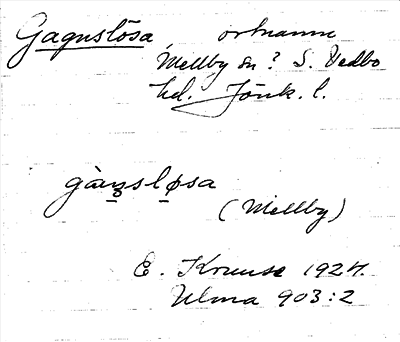 Gagnslösa ortnamn
Mellby sn? S. Vedbo
hd. Jönk. l.
gàŋsløsa
(Mellby)
E. Kruuse 1924.
Ulma 903:2